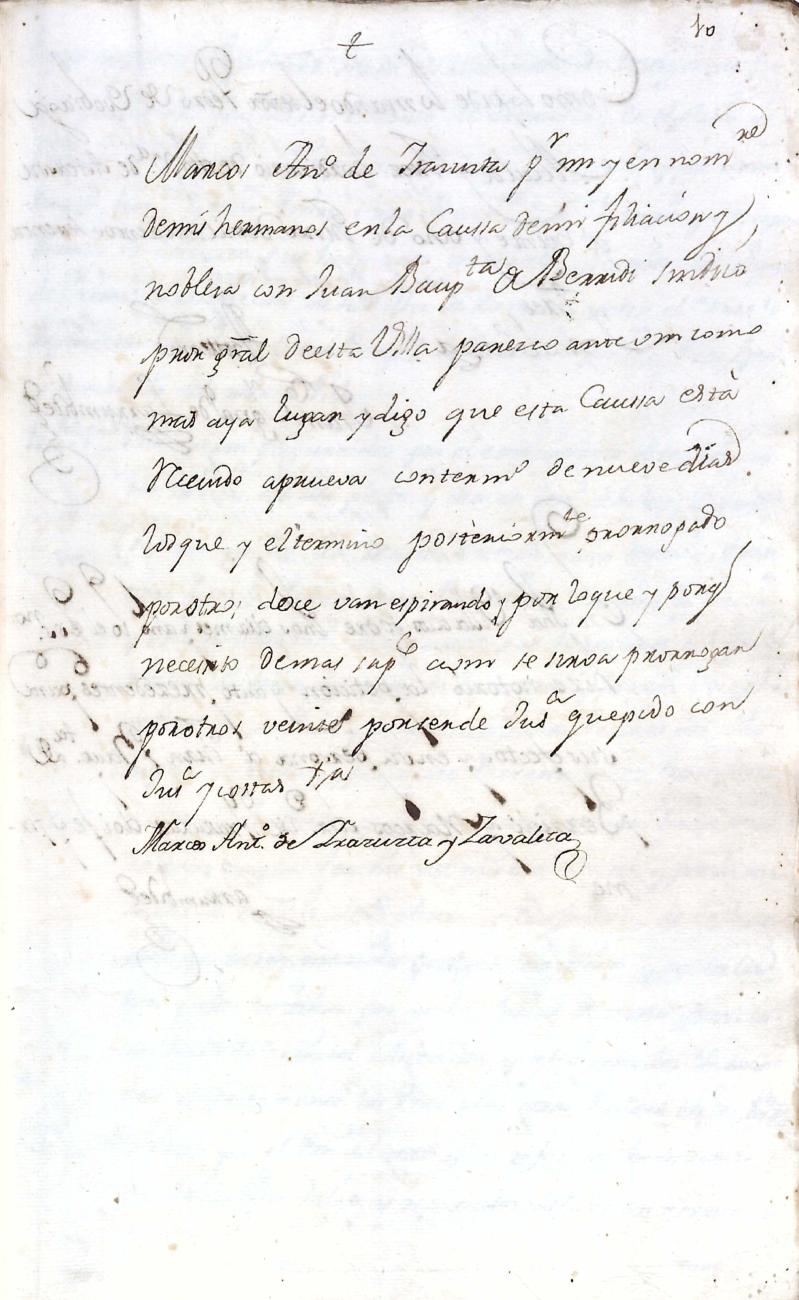 10
Marcos Anto. de Irazusta pr mi y en nomre
demis hermanos en la Caussa demi filiacion y
nobleza con Juan Baupta de Berridi sindico
pror gral deesta Villa parezco ante vm como
mas aya lugar y digo que esta Caussa està
Recevido aprueva contermo de nueve dias
losque y eltermino posteriormte prorrogado
porotros doce van espirando y por loque y porq
necesito demas supco avm se sirva prorrogar
porotros veinte portende Jusa quepido con
Jusa y costas
Marcos Anto. de Irazuzta y Zavaleta